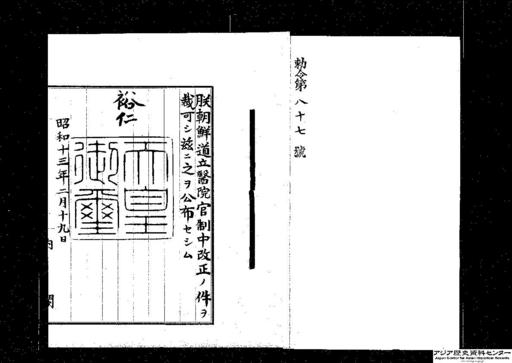 勅令第八十七號
朕朝鮮道立醫院官制中改正ノ件ヲ
裁可シ茲ニ之ヲ公布セシム
裕仁
天皇
御璽
昭和十三年二月十九日
内閣
アジア歴史資料センター
Japan Center for Asian Historical Records